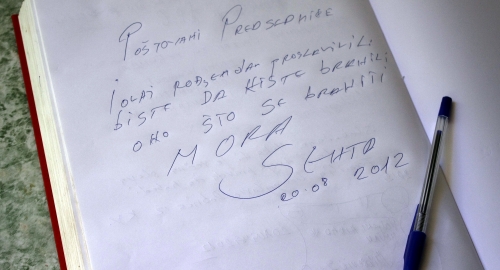 POŠTOVANI PREDSEDNIČE
I OVAJ ROĐENDAN PROSLAVILI
BISTE DA NISTE BRANILI
ONO ŠTO SE BRANITI
MORA
20.08 2012